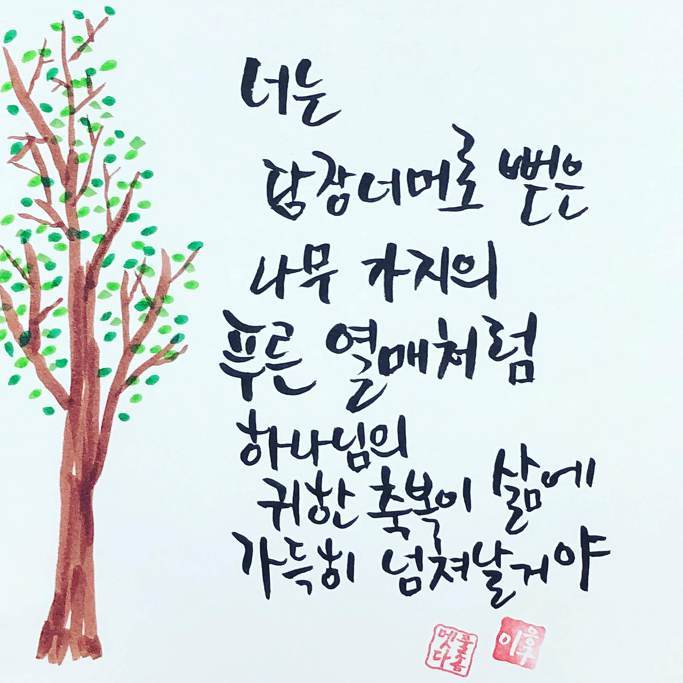 너는
담장너머로 뻗은
나무 가지의
푸른 열매처럼
하나님의
귀한 축복이 삶에
가득히 넘쳐날거야